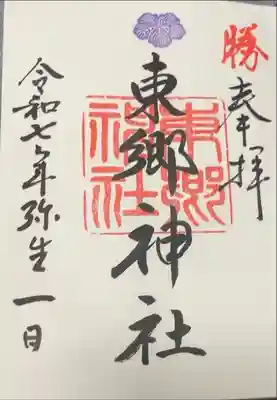 勝
奉拝
東郷神社
東郷神社
令和七年弥生一日